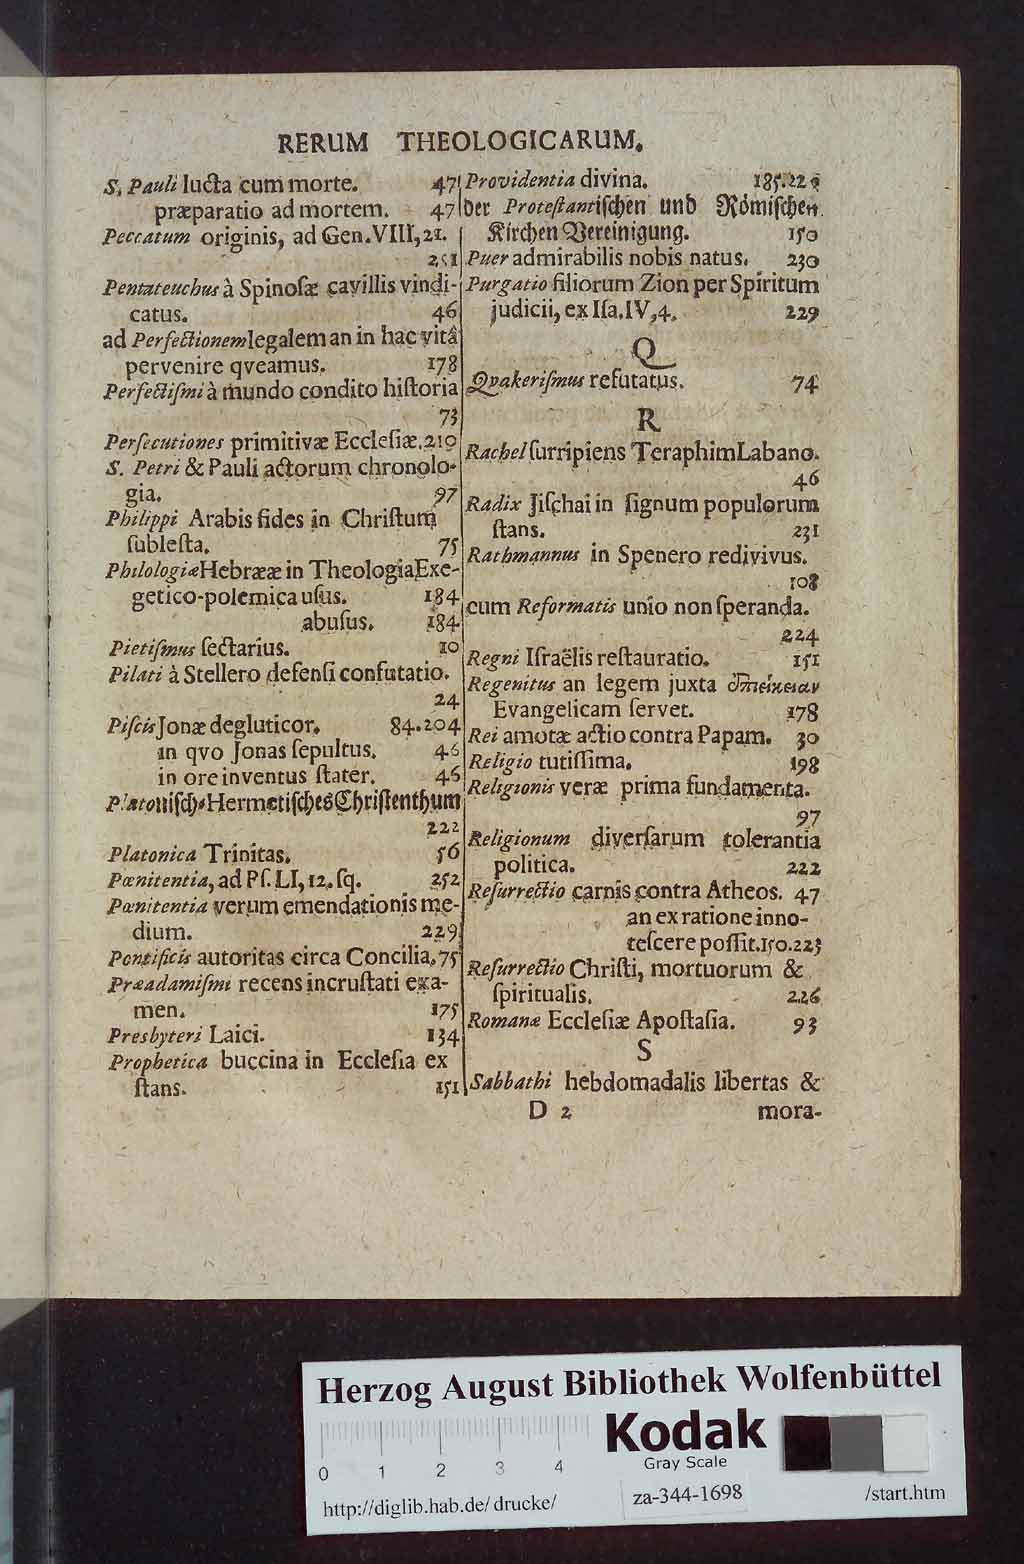 RERUM THEOLOGICARUM.
S. Pauli lucta cum morte. 47
præparatio ad mortem. 47
Peccatum originis, ad Gen. VIII, 21.
251
Pentateuchus à Spinoſæ cavillis vindi-
catus. 46
ad Perfectionem legalem an in hac vitâ
pervenire qveamus. 178
Perfectiſmi à mundo condito hiſtoria
73
Perſecutiones primitivæ Eccleſiæ. 210
S. Petri & Pauli actorum chronolo-
gia. 97
Philippi Arabis fides in Chriſtum
ſubleſta. 75
Philologiæ Hebrææ in Theologia Exe-
getico-polemica uſus. 184
abuſus. 184
Pietiſmus ſectarius. 10
Pilati à Stellero defenſi confutatio.
24
Piſcis Jonæ deglutior. 84. 204
in qvo Jonas ſepultus. 46
in ore inventus ſtater. 46
Platoniſch-Hermetiſches Chriſtenthum
222
Platonica Trinitas. 56
Pœnitentia, ad Pſ. LI, 12. ſq. 252
Pœnitentia verum emendationis me-
dium. 229
Pontificis autoritas circa Concilia. 75
Præadamiſmi recens incruſtati exa-
men. 175
Presbyteri Laici. 134
Prophetica buccina in Eccleſia ex
ſtans. 151
Providentia divina. 185.
der Proteſtantiſchen und Römiſchen
Kirchen Vereinigung. 150
Puer admirabilis nobis natus. 230
Purgatio filiorum Zion per Spiritum
judicii, ex Iſa. IV, 4. 229
Q
Qvakeriſmus refutatus. 74
R
Rachel ſurripiens Teraphim Labano.
46
Radix Jiſchai in ſignum populorum
ſtans. 231
Rathmannus in Spenero redivivus.
108
cum Reformatis unio non ſperanda.
224
Regni Iſraëlis reſtauratio. 151
Regenitus an legem juxta ἐπιείκειαν
Evangelicam ſervet. 178
Rei amotæ actio contra Papam. 30
Religio tutiſſima. 198
Religionis veræ prima fundamenta.
97
Religionum diverſarum tolerantia
politica. 222
Reſurrectio carnis contra Atheos. 47
an ex ratione inno-
teſcere poſſit. 150. 223
Reſurrectio Chriſti, mortuorum &
ſpiritualis. 226
Romanæ Eccleſiæ Apoſtaſia. 93
S
Sabbathi hebdomadalis libertas &
D 2 mora-
Herzog August Bibliothek Wolfenbüttel
Kodak
Gray Scale
0 1 2 3 4
http://diglib.hab.de/ drucke/ za-344-1698 /start.htm